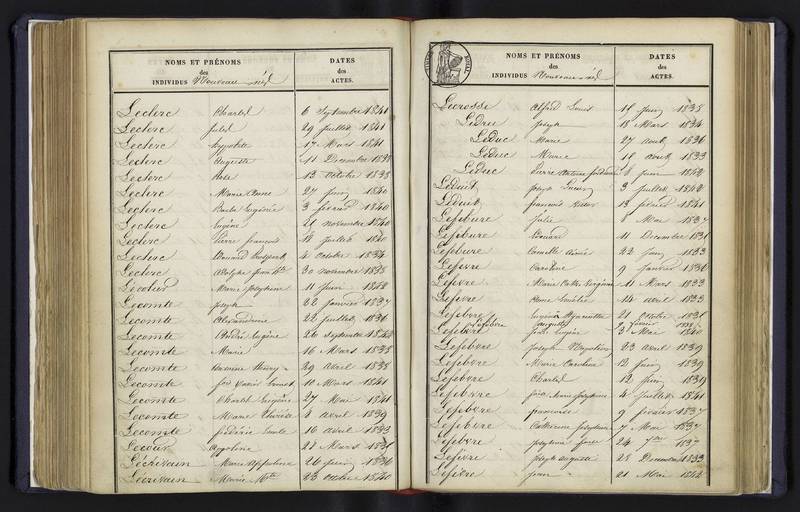 NOMS ET PRÉNOMS
des
INDIVIDUS Nouveau nés
DATES
des
ACTES.
Leclerc Charles 6 Septembre 1841
Leclerc Jules 29 Juillet 1841
Leclerc hyppolite 17 Mars 1841
Leclerc Auguste 11 Decembre 1838
Leclerc 13 Octobre 1838
Leclerc Marie Anne 27 Juin 1840
Leclerc Eugénie 3 février 1840
Leclerc Eugène 21 novembre 1840
Leclerc Pierre françois 18 Juillet 1840
Leclerc 4 Octobre 1834
Leclerc Adolphe Jean Bte 30 novembre 1838
Marie Josephine 11 Juin 1842
Lecomte Joseph 22 Janvier 1837
Lecomte Alexandrine 22 Juillet 1836
Lecomte Eugène 26 Septembre 1842
Lecomte Marie 16 Mars 1838
Lecomte 29 Avril 1838
Lecomte 10 Mars 1841
Lecomte Charles Eugène 27 Mai 1841
Lecomte Marie Thérèse 4 avril 1839
Lecomte fédéric Emile 16 avril 1833
Lecour 22 Mars 1831
Léchrivain Marie Appoline 26 Juin 1836
Lecrivain Marie 23 Octobre 1840
NOMS ET PRÉNOMS
des
INDIVIDUS Nouveau nés
DATES
des
ACTES.
Lecrosse Alfred Louis 11 Juin 1838
Ledru Joseph 18 Mars 1834
Leduc Marie 27 août 1836
Leduc Marie 18 août 1833
Leduc Pierre Antoine 6 Juin 1842
Leduit Joseph 3 Juillet 1842
Leduit françois 13 février 1841
Lefebure Julie 8 Mai 1837
Lefebure Edouard 11 Decembre 1831
Lefebure Camille Aimée 22 Juin 1833
Lefevre Caroline 9 Janvier 1836
Lefevre Marie 11 Mars 1833
Lefevre 14 avril 1833
Lefebvre Eugénie 21 Octobre 1831
Lefebvre Auguste février 1838
Lefebvre 3 Mai 1840
Lefebvre Joseph 23 avril 1839
Lefebvre Marie Caroline 13 Juin 1839
Lefebvre Charles 12 Juin 1839
Lefebvre Josephine 4 Juillet 1841
Lefebvre françoise 9 février 1837
Lefebvre Catherine Josephine 7 Mai 1837
Lefebvre 24 7bre 1837
Lefèvre Joseph Auguste 28 Decembre 1833
Lefèvre Jean 21 Mai 1842